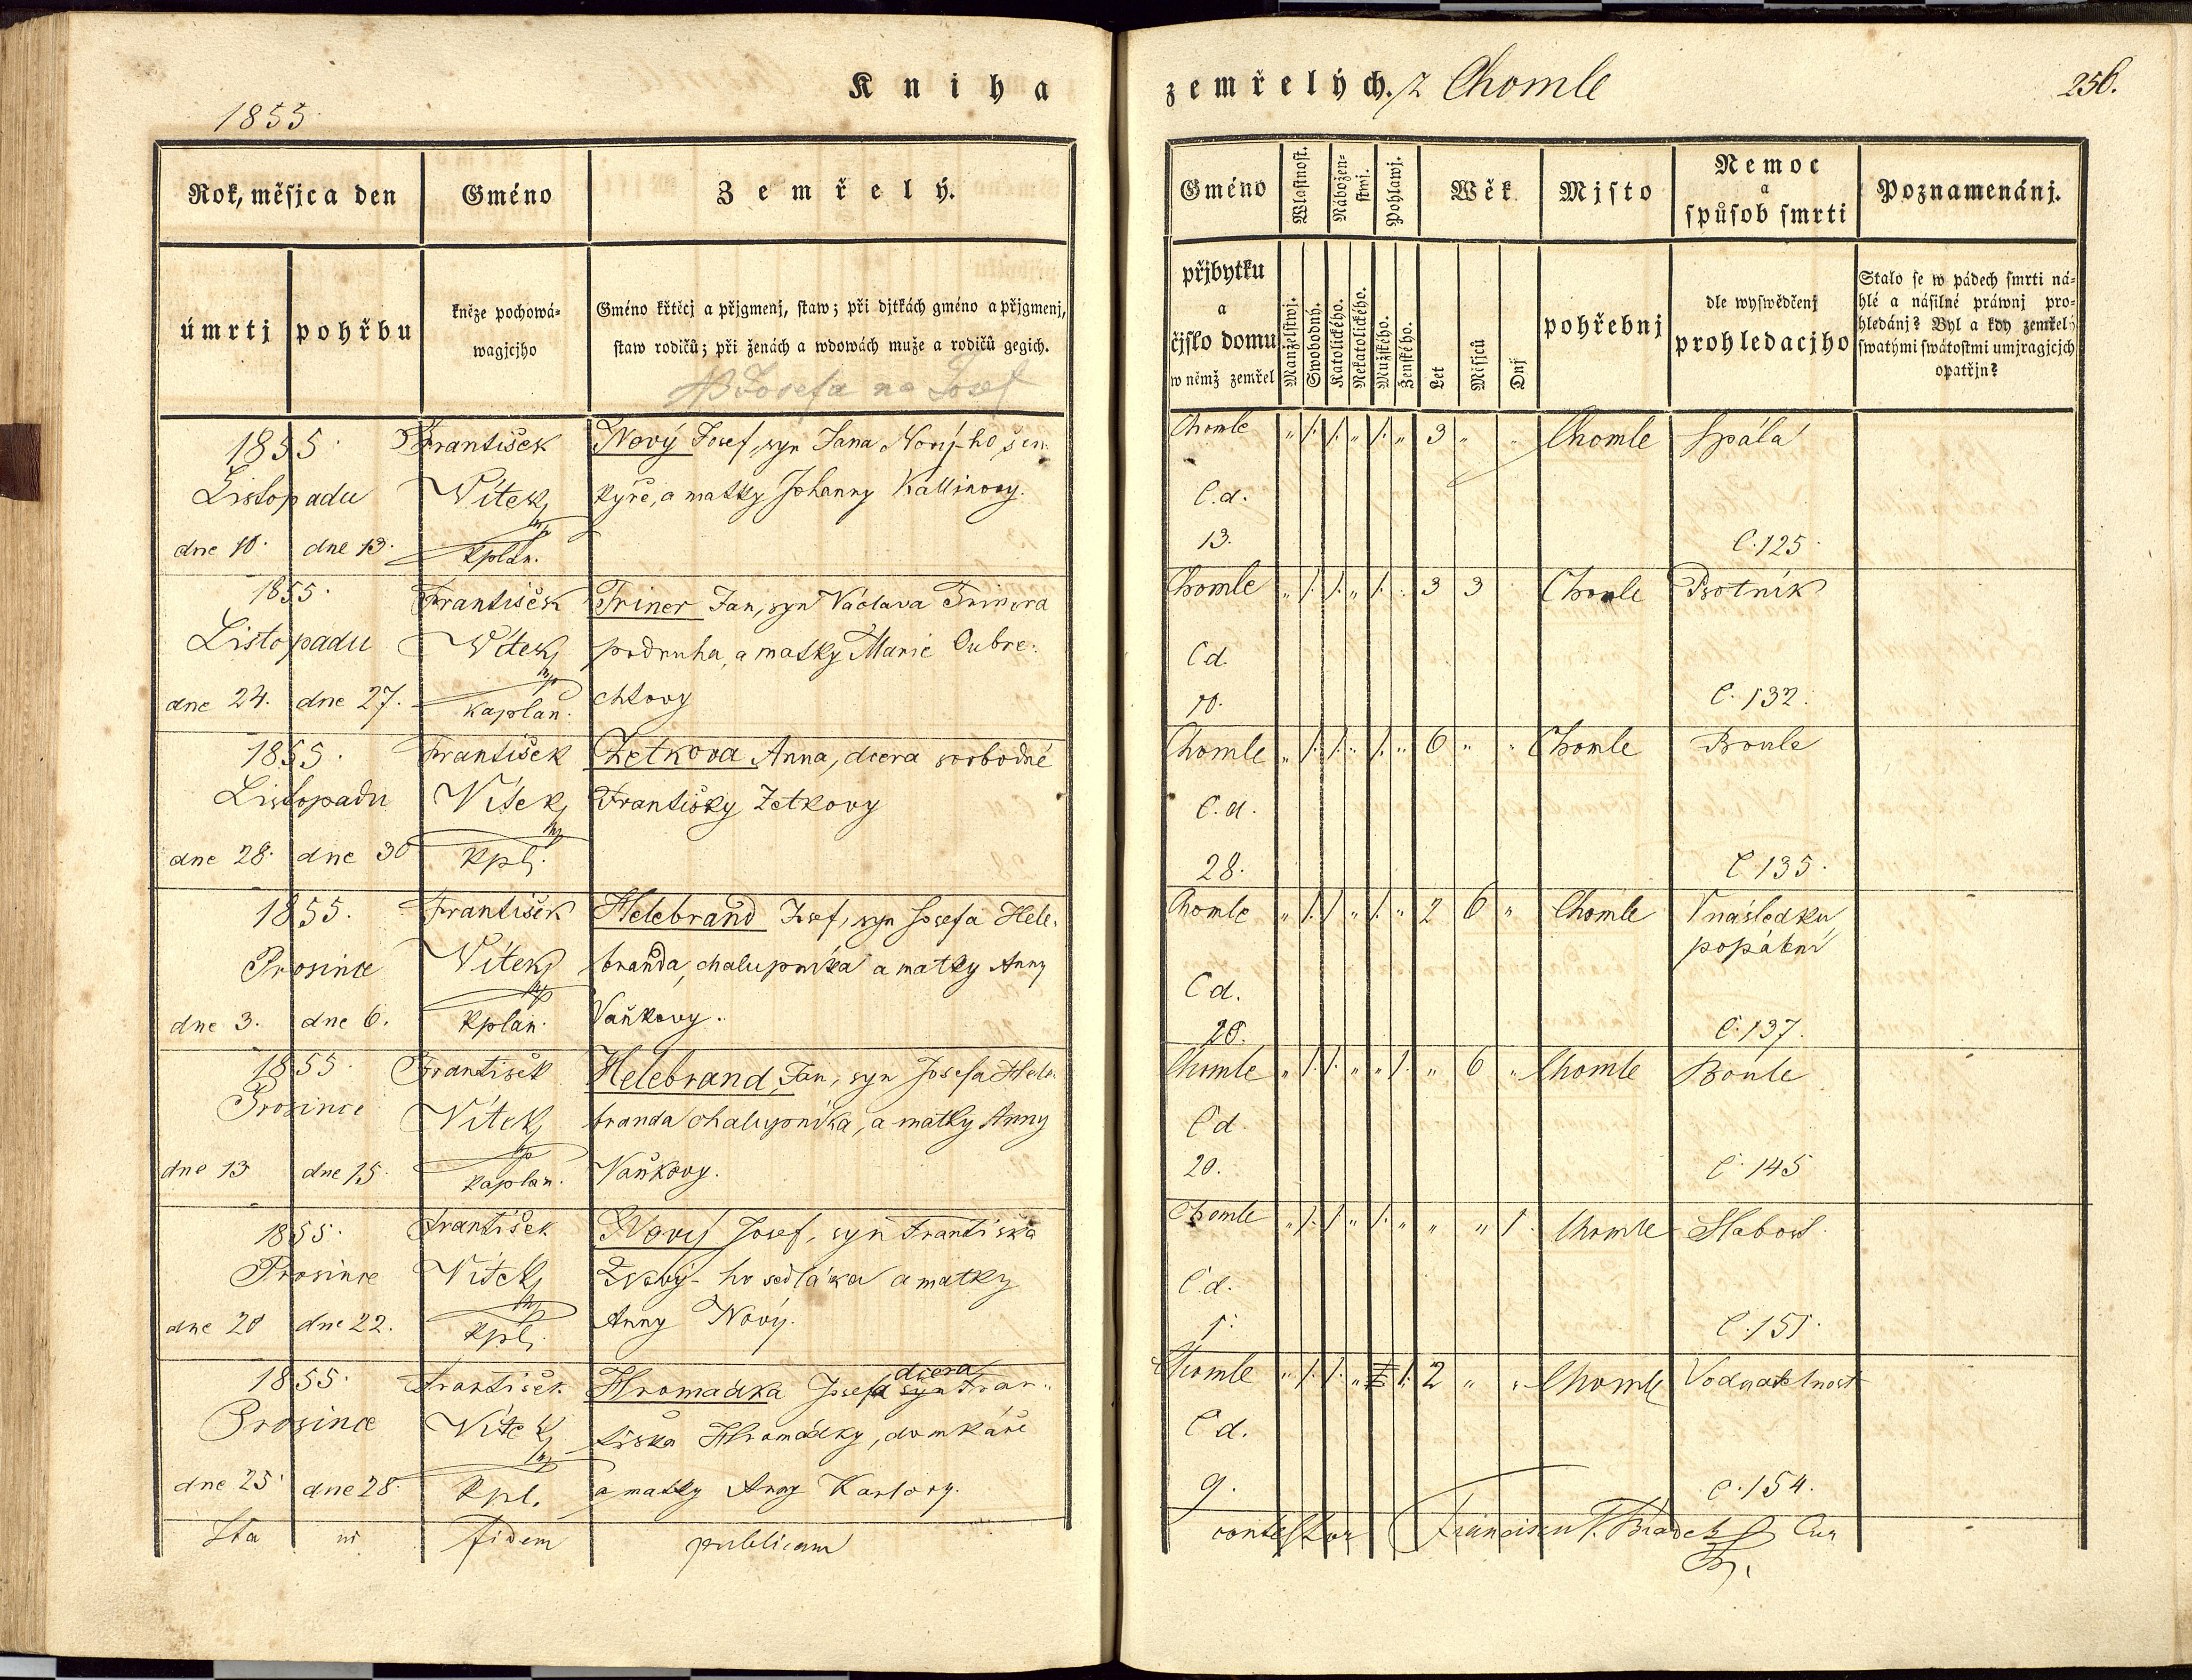 Kniha
zemřelých. z Chomle
256.
1855
Rok, měsjc a den
Gméno
Zemřelý.
úmrtj
pohřbu
kněze pochowá-
wagjcjho
Gméno křtěcj a přjgmenj, staw; při djtkách gméno a přjgmenj,
staw rodičů; při ženách a wdowách muže a rodičů gegich.
Josefa na Josef
Gméno
Wlastnost.
Nábožen-
stwj.
Pohlawj.
Wěk
Mjsto
Nemoc
a
spůsob smrti
Poznamenánj.
přjbytku
a
čjslo domu
w němž zemřel
Manželstwj.
Swobodný.
Katolického.
Nekatolického.
Mužského.
Ženského.
Let
Měsjců
Dnj
pohřebnj
dle wyswědčenj
prohledacjho
Stalo se w pádech smrti ná-
hlé a násilné práwnj pro-
hledánj? Byl a kdy zemřelý
swatými swátostmi umjragjcjch
opatřjn?
1855. František Nový Josef, syn Jana Nový-ho, šen-
Listopadu Vítek kyře, a matky Johanny Kallinovy.
dne 10. dne 13. kplán.
Chomle „ 1. 1. „ 1. „ 3 „ „ Chomle Spála
C.d.
13. C. 125.
1855. František Triner Jan, syn Václava Trinera
Listopadu Vítek podruha, a matky Marie Dubre-
dne 24. dne 27. kaplan. chtovy
Chomle „ 1. 1. „ 1. „ 3 3 Chomle Psotník
Cd.
10. C. 132.
1855. František Zetkova Anna, dcera svobodné
Listopadu Vítek Františky Zetkovy
dne 28. dne 30 kpl.
Chomle „ 1. 1. „ 1. „ 6 „ „ Chomle Boule
C.d.
28. C 135.
1855. František Helebrand Josef, syn Josefa Hele-
Prosince Vítek branda, chalupníka a matky Anny
dne 3. dne 6. kplán. Vaňkovy.
Chomle „ 1. 1. „ 1. „ 2 6 „ Chomle V následku
popálení
Cd.
20. C. 137.
1855. František Helebrand Jan, syn Josefa Hele-
Prosince Vítek branda chalupníka, a matky Anny
dne 13 dne 15. kaplan. Vaňkovy.
Chomle „ 1. 1. „ „ 1. „ 6 „ Chomle Boule
Cd.
20. C. 145
1855. František Nový Josef, syn Františka
Prosince Vítek Nový-ho sedláka a matky
dne 20 dne 22. kpl. Anny Nový.
Chomle „ 1. 1. „ 1. „ „ „ 1. Chomle Slabost.
C.d.
1. C. 151.
dcera
1855. František Hromadka Josefa syn Fran-
Prosince Vítek tiška Hromádky, domkáře
dne 25. dne 28. kpl. a matky Anny Karlovy.
Chomle „ 1. 1. „ 1. 2 „ „ Chomle Vodnatelnost
Cd.
9. C. 154.
Ita in fidem publicam
contestor Cur